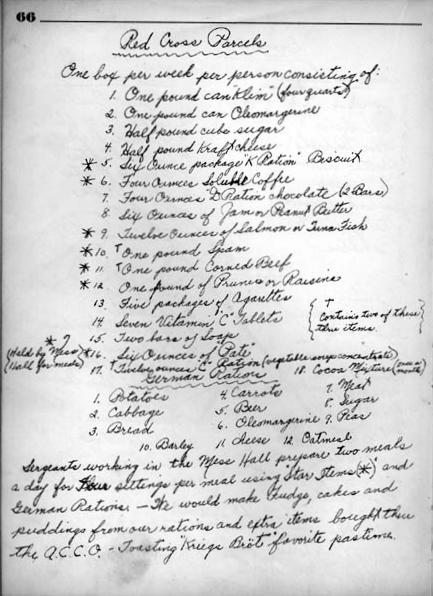 66
Red Cross Parcels
One box per week per person consisting of:
1. One pound can "Klim" (four quarts)
2. One pound can Oleomargerine
3. Half pound cube sugar
4. Half pound Kraft cheese
* 5. Six Ounce package "K Ration" Biscuit
* 6. Four Ounces Soluble Coffee
7. Four Ounces "D Ration" chocolate (2 Bars)
8. Six Ounces of Jam or Peanut Butter
* 9. Twelve Ounces of Salmon or Tuna Fish
* 10. † One pound Spam
* 11. † One pound Corned Beef
* 12. One pound of Prunes or Raisins
13. Five packages of Cigarettes
14. Seven Vitamin "C" Tablets
{ † Contains two of these three items. }
15. Two bars of Soap
{Held by Mess Hall for meals} * 16. Six Ounces of "Pate"
17. † Twelve ounces "C" Ration (vegetable soup concentrate)
18. Cocoa Mixture (once a month)
German Ration
1. Potatoes 4. Carrots 7. Meat
2. Cabbage 5. Beer 8. Sugar
3. Bread 6. Oleomargerine 9. Peas
10. Barley 11. Cheese 12. Oatmeal
Sergeants working in the Mess Hall prepare two meals
a day for four settings per meal using "Star Items" (*) and
German Rations. - We would make Fudge, cakes and
puddings from our rations and extra items bought thru
the A.C.C.O. - Toasting "Kriegs Bröt" favorite pastime.